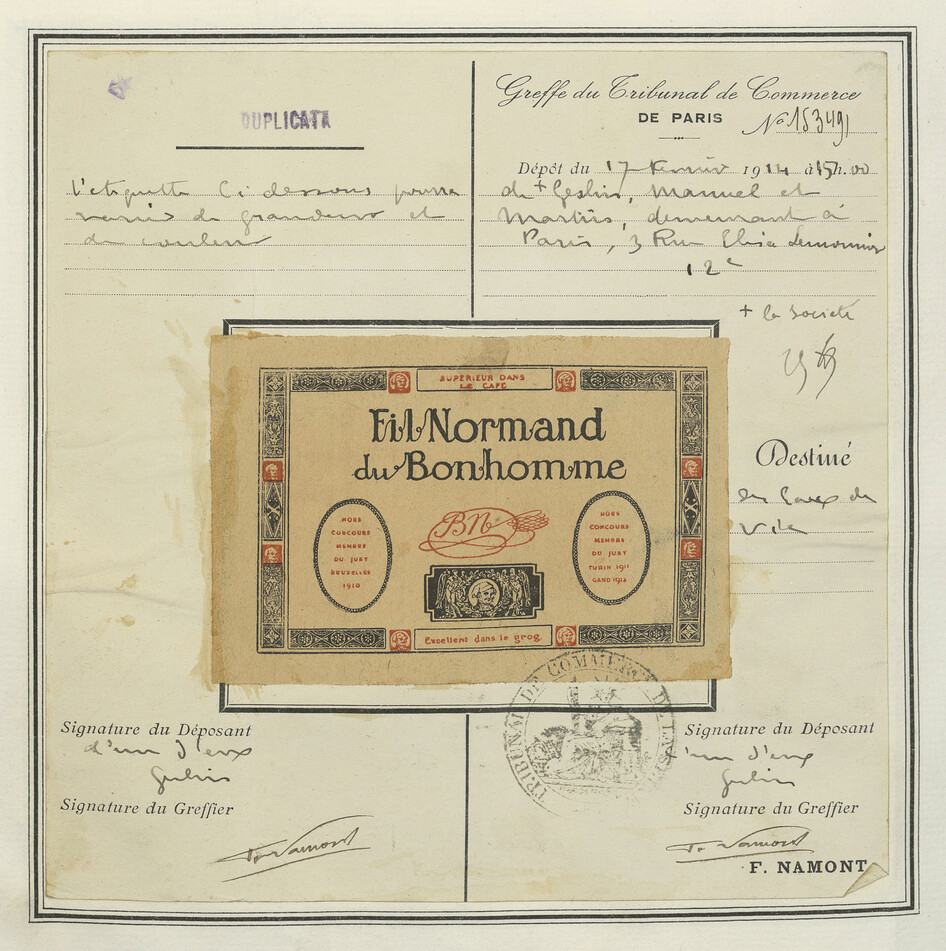 DUPLICATA
L'etiquette Ci dessous pourra
varier de grandeur et
de couleur
Greffe du Tribunal de Commerce
DE PARIS
No 153491
Dépôt du 17 1914 à 15h.00
de + Geslin, Manuel et
demeurant à
Paris, 3 Rue Elisa Lemonnier
12e
+ la Société
SUPÉRIEUR DANS
LE CAFÉ
Fil Normand
du Bonhomme
BN
HORS
CONCOURS
MEMBRE
DU JURY
BRUXELLES
1910
HORS
CONCOURS
MEMBRE
DU JURY
TURIN 1911
GAND 1913
Excellent dans le grog
Destiné
des eaux de
vie
TRIBUNAL DE COMMERCE DE LA SEINE
Signature du Déposant
d'un d'eux
Geslin
Signature du Greffier
F. Namont
Signature du Déposant
d'un d'eux
Geslin
Signature du Greffier
F. Namont
F. NAMONT